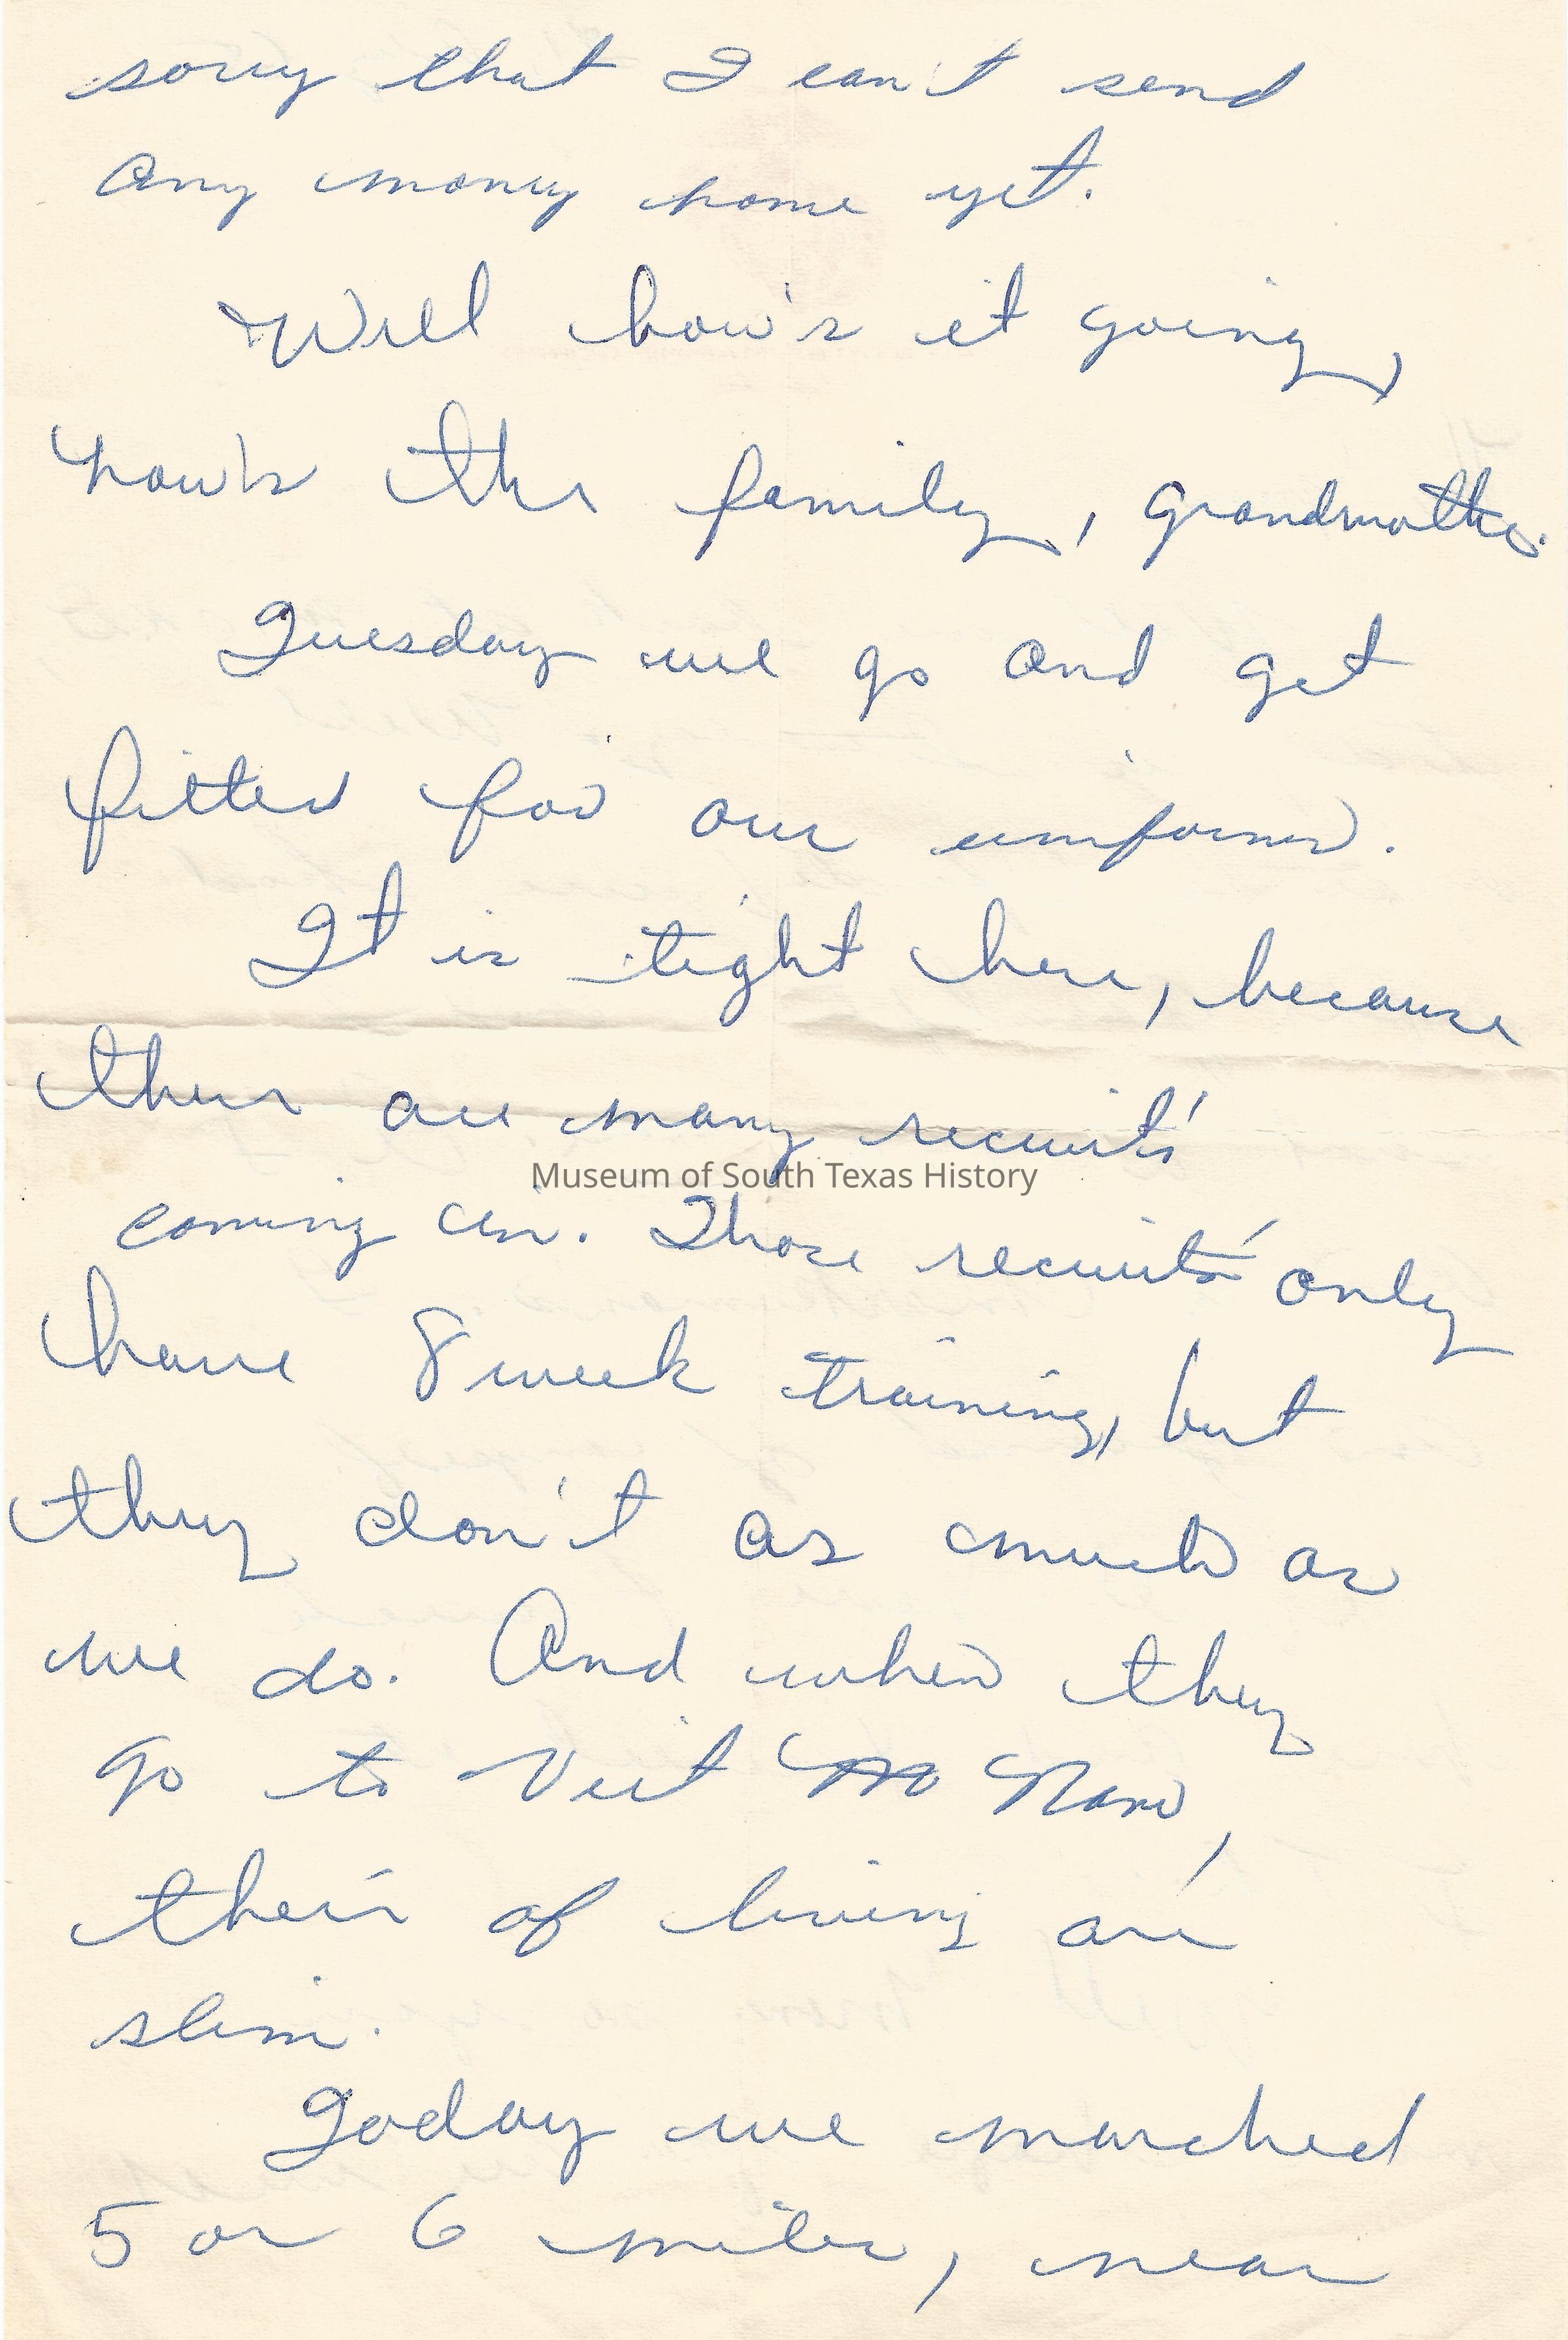 sorry that I can't send
any money home yet.
Well how's it going,
how's the family, grandmother.
Tuesday we go and get
fitted for our uniform.
It is tight here, because
there are many recruits'
Museum of South Texas History
coming in. Those recruits' only
have 8 week training, but
they don't as much as
we do. And when they
go to Viet Nam,
their of living are
slim.
Today we marched
5 or 6 miles, near